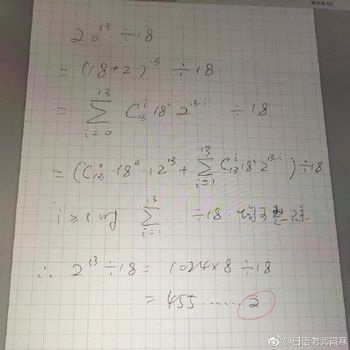 20¹³ ÷ 18
= (18+2)¹³ ÷ 18
= ∑_{i=0}^{13} C₁₃ⁱ 18ⁱ 2^{13-i} ÷ 18
= (C₁₃⁰ · 18⁰ · 2¹³ + ∑_{i=1}^{13} C₁₃ⁱ 18ⁱ 2^{13-i}) ÷ 18
i ≥ 1 时 ∑_{i=1}^{13} … ÷ 18
∴ 2¹³ ÷ 18 = 1024×8 ÷ 18
= 455 …… 2
@日语老师肯寒